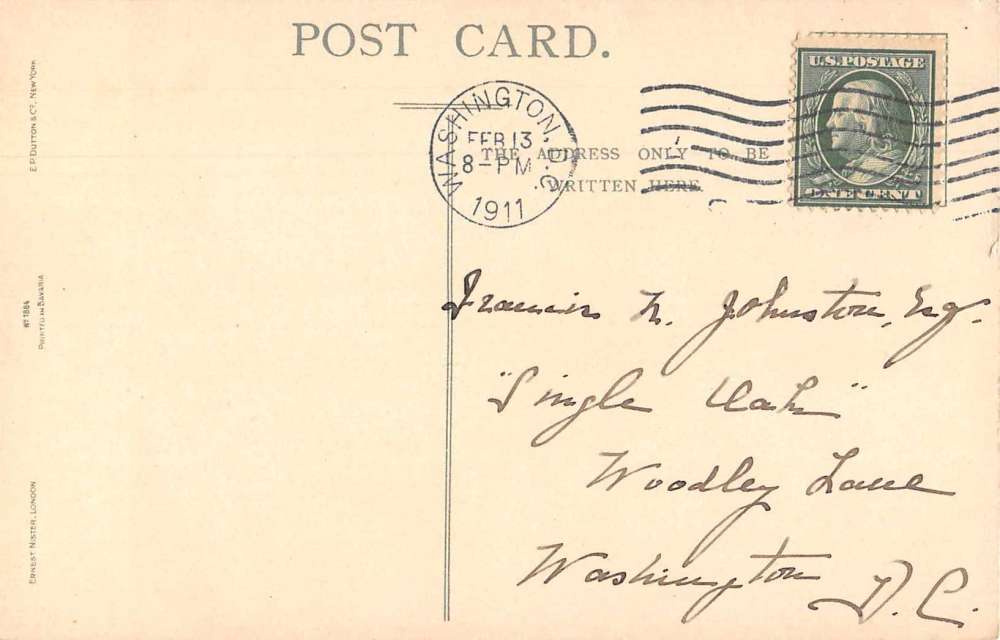 POST CARD.
WASHINGTON, D.C.
FEB 13
8-PM
1911
U.S. POSTAGE
ONE CENT
THE ADDRESS ONLY TO BE
WRITTEN HERE.
Francis N. Johnston, Esq.
"Single Oak"
Woodley Lane
Washington D.C.
E.P. DUTTON & Co. NEW YORK
No 1884
PRINTED IN BAVARIA
ERNEST NISTER, LONDON